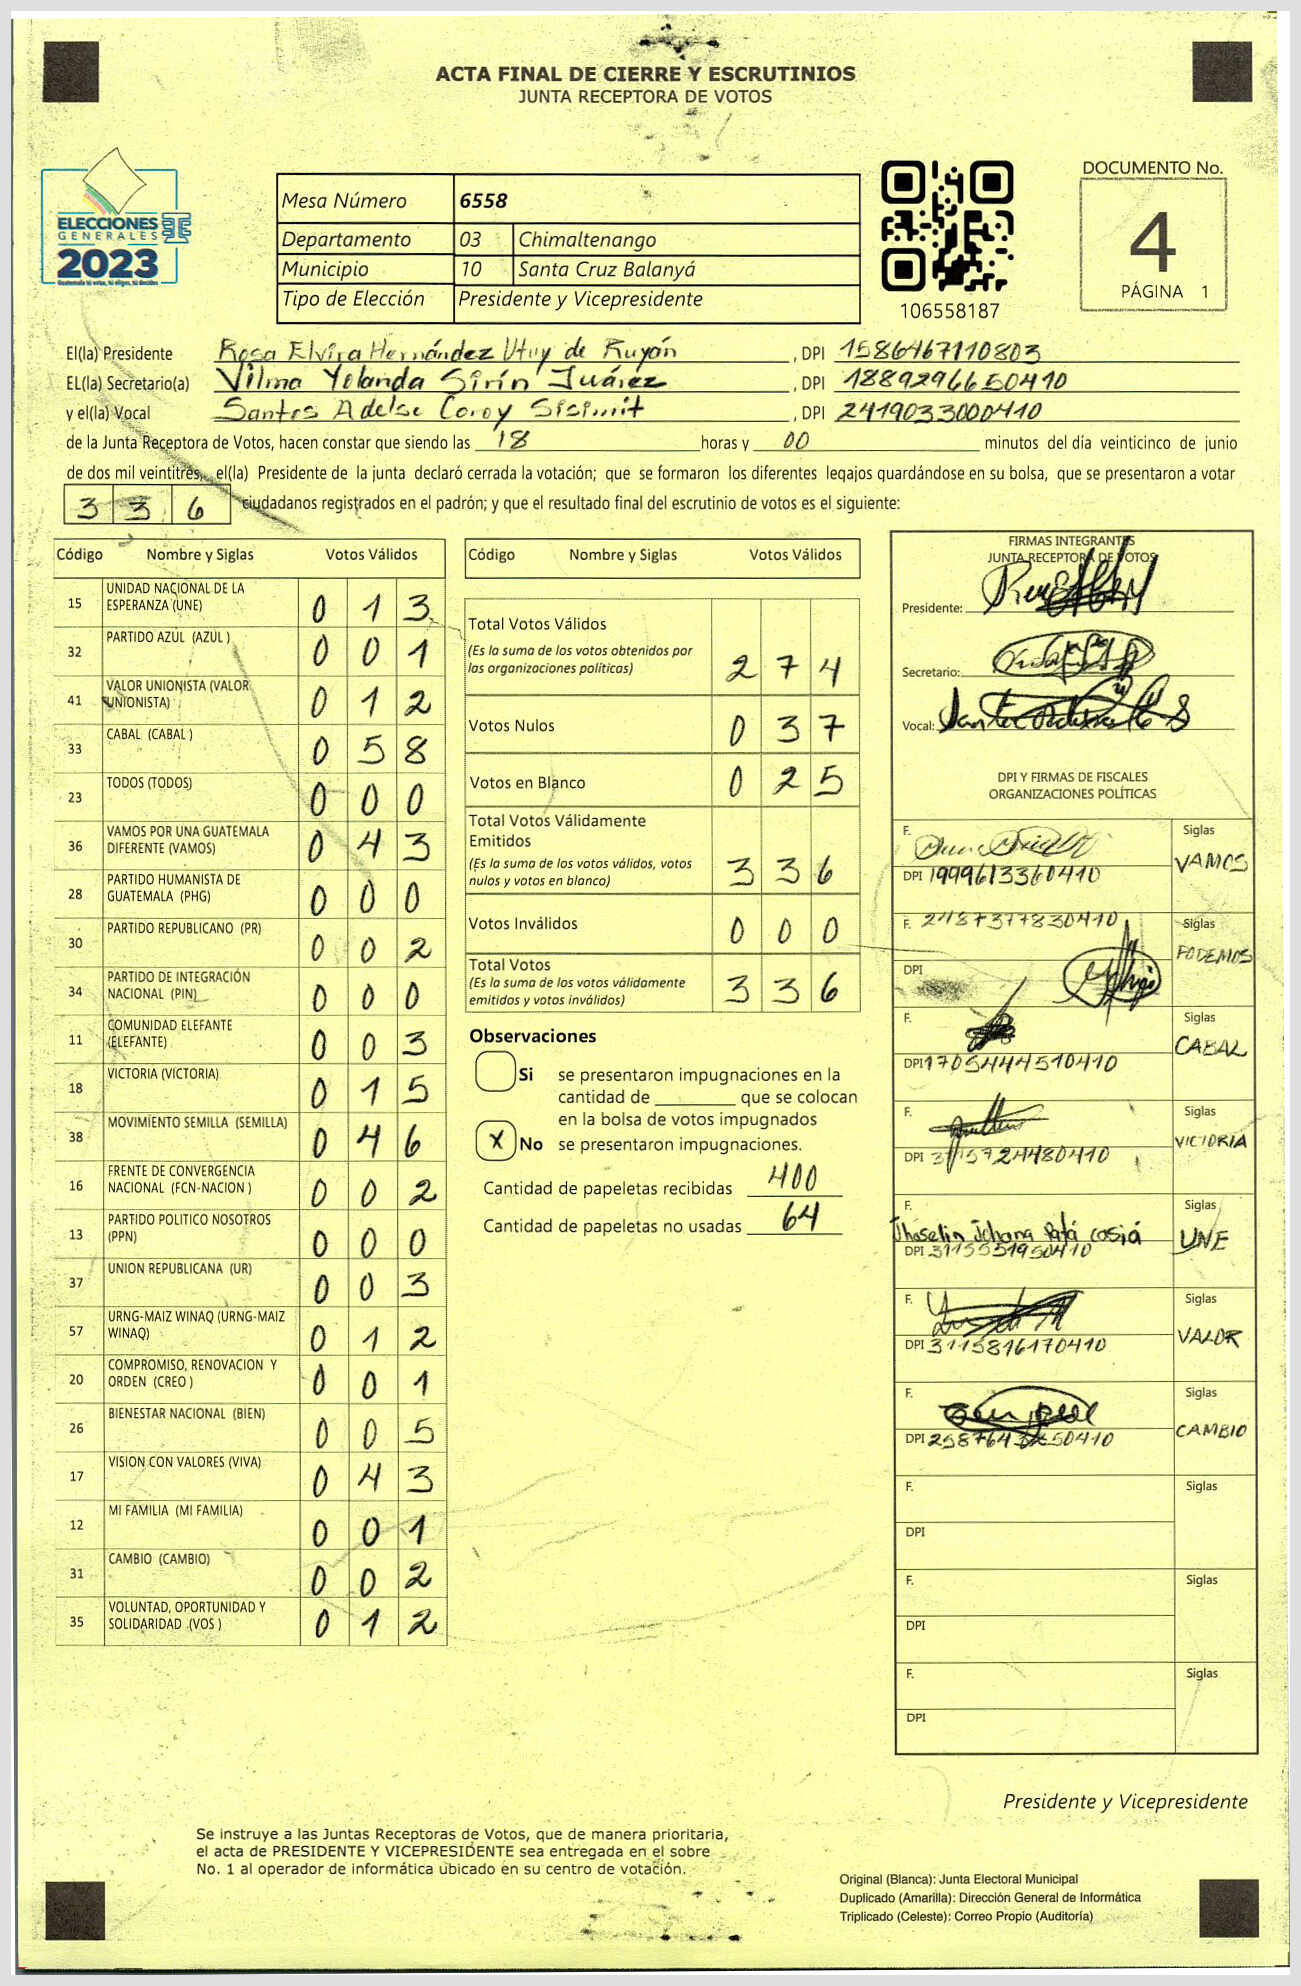 ACTA FINAL DE CIERRE Y ESCRUTINIOS
JUNTA RECEPTORA DE VOTOS
ELECCIONES
GENERALES
2023
Guatemala tú votas, tú eliges, tú decides
TSE
Mesa Número 6558
Departamento 03 Chimaltenango
Municipio 10 Santa Cruz Balanyá
Tipo de Elección Presidente y Vicepresidente
106558187
DOCUMENTO No.
4
PÁGINA 1
El(la) Presidente Rosa Elvira Hernández Utuy de Ruyán, DPI 1586467110803
EL(la) Secretario(a) Vilma Yolanda Sirín Juárez, DPI 1889296650410
y el(la) Vocal Santos Coroy, DPI 2419033000410
de la Junta Receptora de Votos, hacen constar que siendo las 18 horas y 00 minutos del día veinticinco de junio
de dos mil veintitrés, el(la) Presidente de la junta declaró cerrada la votación; que se formaron los diferentes legajos guardándose en su bolsa, que se presentaron a votar
336 ciudadanos registrados en el padrón; y que el resultado final del escrutinio de votos es el siguiente:
Código Nombre y Siglas Votos Válidos
15 UNIDAD NACIONAL DE LA ESPERANZA (UNE) 013
32 PARTIDO AZUL (AZUL ) 001
41 VALOR UNIONISTA (VALOR UNIONISTA) 012
33 CABAL (CABAL ) 058
23 TODOS (TODOS) 000
36 VAMOS POR UNA GUATEMALA DIFERENTE (VAMOS) 043
28 PARTIDO HUMANISTA DE GUATEMALA (PHG) 000
30 PARTIDO REPUBLICANO (PR) 002
34 PARTIDO DE INTEGRACIÓN NACIONAL (PIN) 000
11 COMUNIDAD ELEFANTE (ELEFANTE) 003
18 VICTORIA (VICTORIA) 015
38 MOVIMIENTO SEMILLA (SEMILLA) 046
16 FRENTE DE CONVERGENCIA NACIONAL (FCN-NACION ) 002
13 PARTIDO POLITICO NOSOTROS (PPN) 000
37 UNION REPUBLICANA (UR) 003
57 URNG-MAIZ WINAQ (URNG-MAIZ WINAQ) 012
20 COMPROMISO, RENOVACION Y ORDEN (CREO ) 001
26 BIENESTAR NACIONAL (BIEN) 005
17 VISION CON VALORES (VIVA) 043
12 MI FAMILIA (MI FAMILIA) 001
31 CAMBIO (CAMBIO) 002
35 VOLUNTAD, OPORTUNIDAD Y SOLIDARIDAD (VOS ) 012
Código Nombre y Siglas Votos Válidos
Total Votos Válidos 274
(Es la suma de los votos obtenidos por las organizaciones políticas)
Votos Nulos 037
Votos en Blanco 025
Total Votos Válidamente Emitidos 336
(Es la suma de los votos válidos, votos nulos y votos en blanco)
Votos Inválidos 000
Total Votos 336
(Es la suma de los votos válidamente emitidos y votos inválidos)
Observaciones
Si se presentaron impugnaciones en la
cantidad de ________ que se colocan
en la bolsa de votos impugnados
X No se presentaron impugnaciones.
Cantidad de papeletas recibidas 400
Cantidad de papeletas no usadas 64
FIRMAS INTEGRANTES
JUNTA RECEPTORA DE VOTOS
Presidente:
Secretario:
Vocal:
DPI Y FIRMAS DE FISCALES
ORGANIZACIONES POLÍTICAS
F. Siglas VAMOS
DPI 1999613360410
F. 2487377830410 Siglas PODEMOS
DPI
F. Siglas CABAL
DPI 1705444510410
F. Siglas VICTORIA
DPI
F. Jhoselin Johana Siglas UNE
DPI 3115551950410
F. Siglas VALOR
DPI 3115816170410
F. Siglas CAMBIO
DPI
F. Siglas
DPI
F. Siglas
DPI
F. Siglas
DPI
Presidente y Vicepresidente
Se instruye a las Juntas Receptoras de Votos, que de manera prioritaria,
el acta de PRESIDENTE Y VICEPRESIDENTE sea entregada en el sobre
No. 1 al operador de informática ubicado en su centro de votación.
Original (Blanca): Junta Electoral Municipal
Duplicado (Amarilla): Dirección General de Informática
Triplicado (Celeste): Correo Propio (Auditoría)